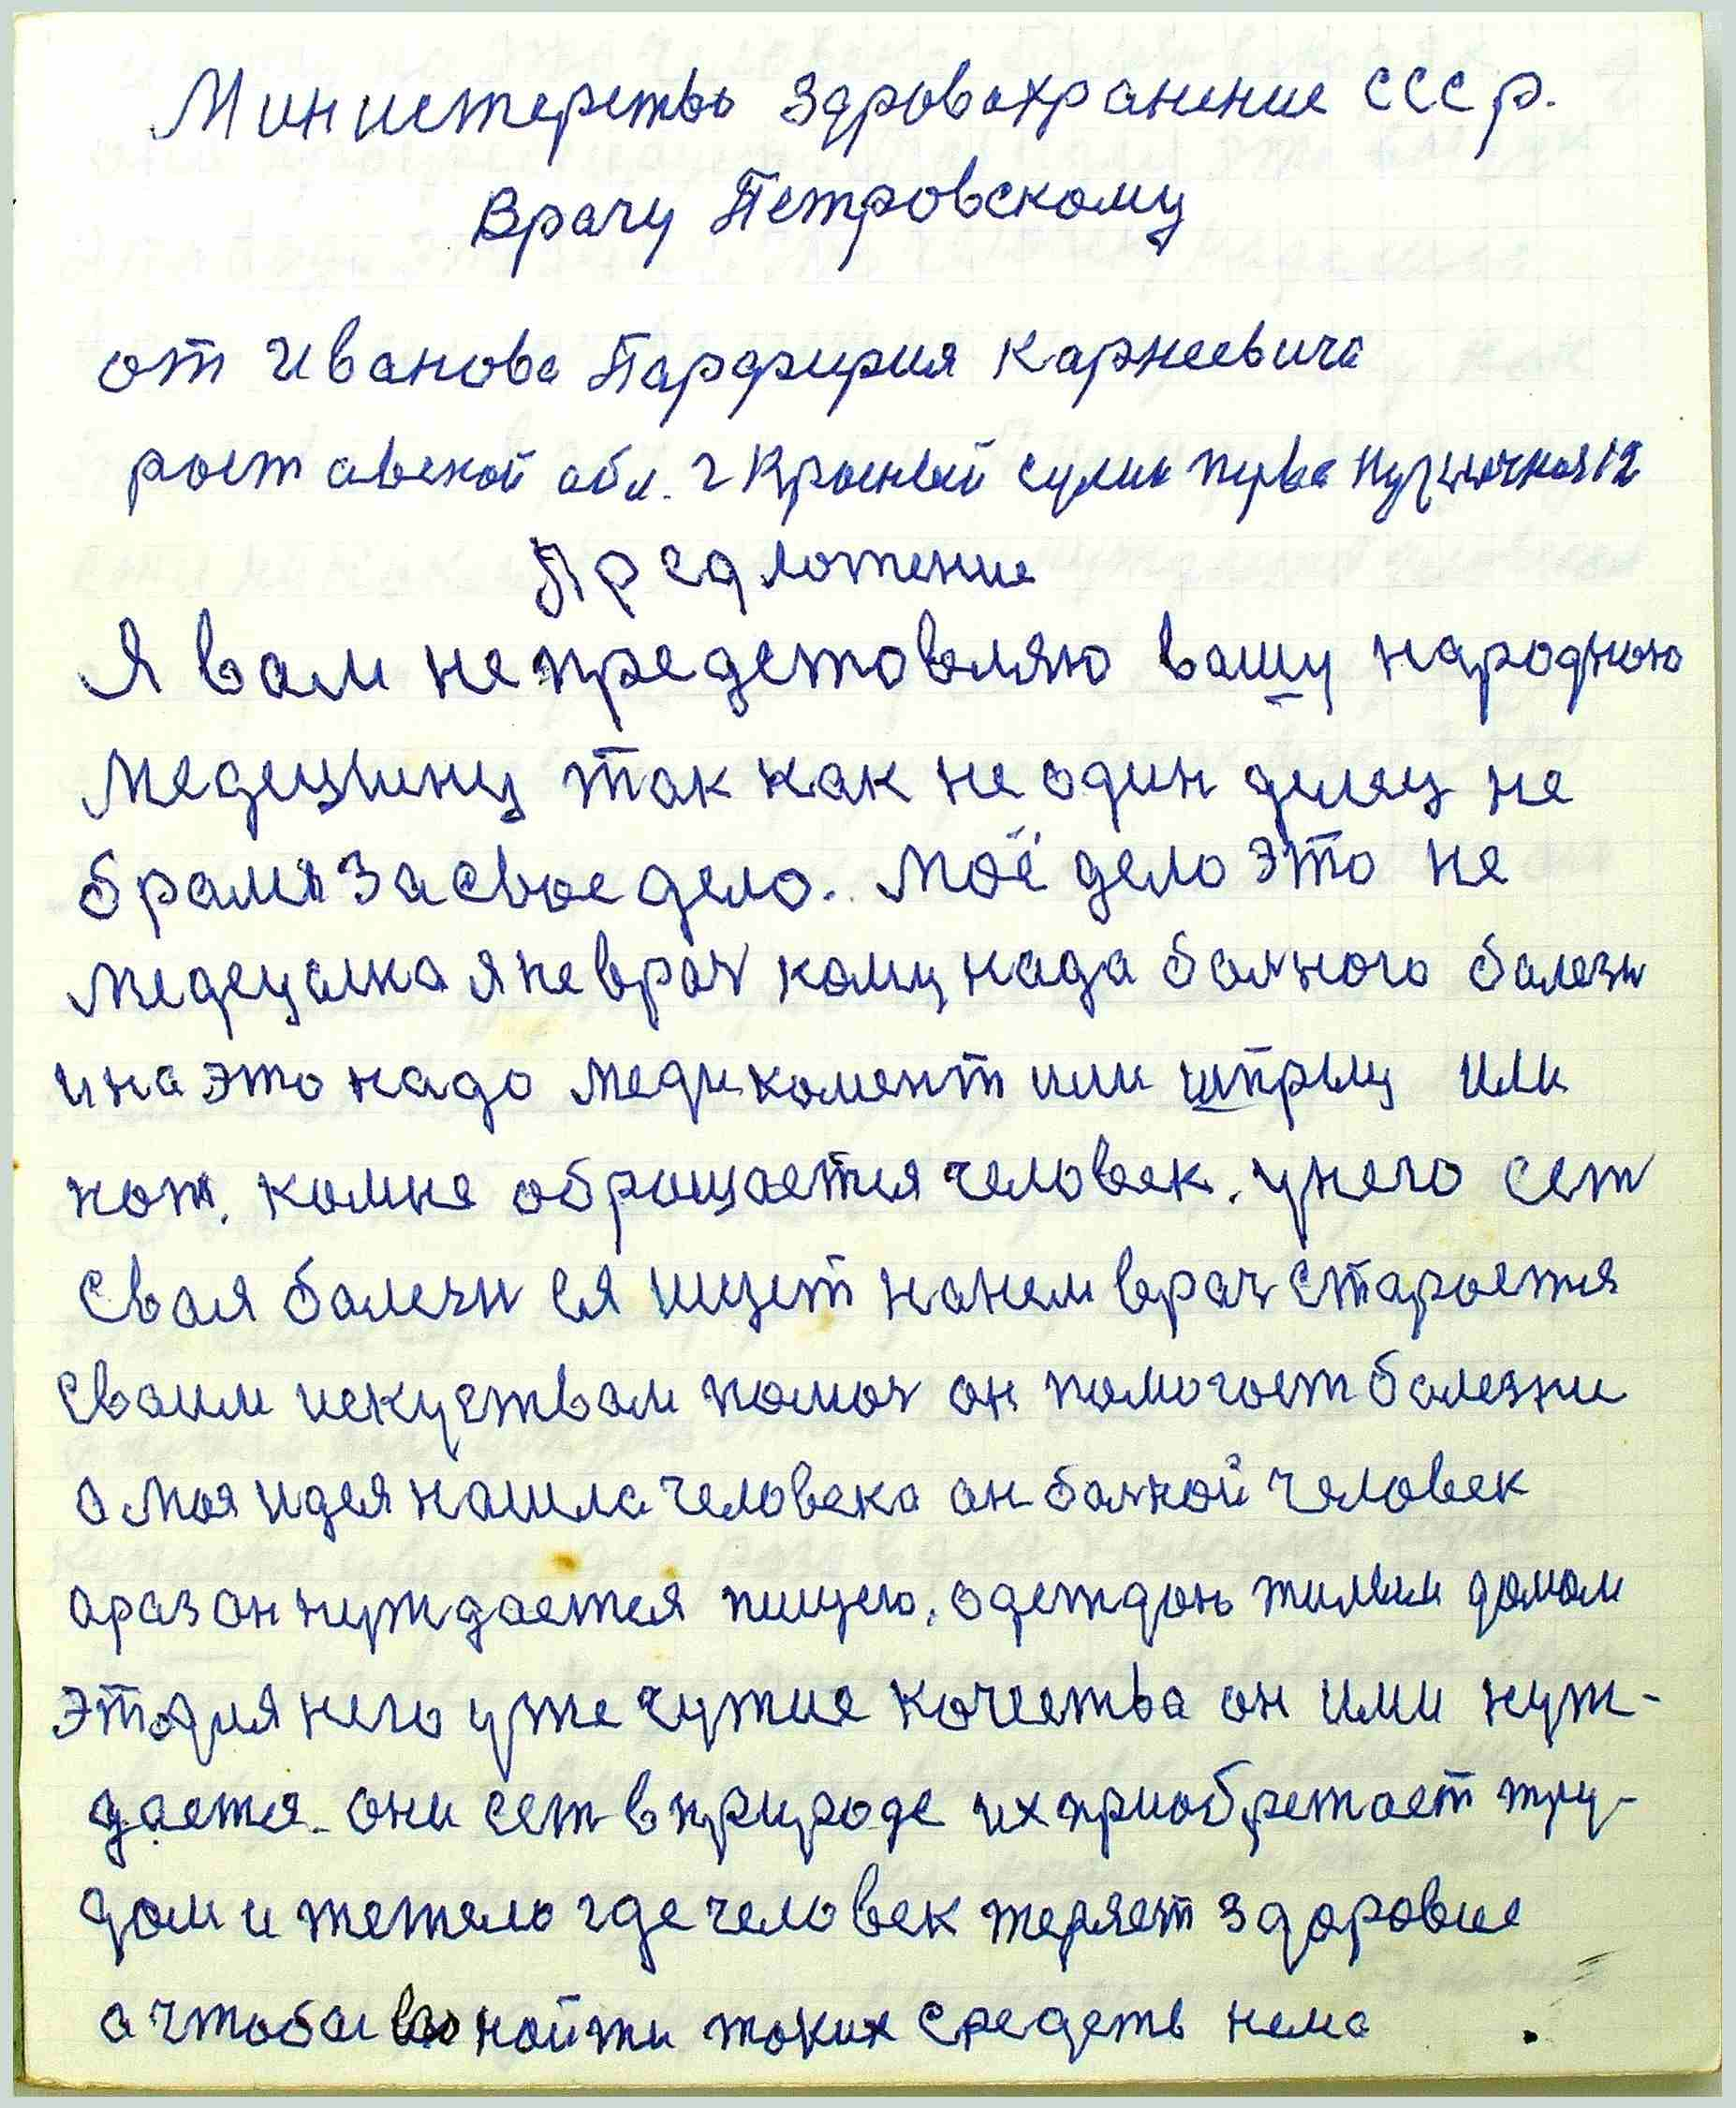 Министерство Здровохранение СССр.
Врачу Петровскому
от Иванова Парфирия Карнеевича
роставской обл. г Красный Сулин перва Кузничная 12
Предложение
Я вам непредстовляю вашу народною
медецину так как не один делец не
брался за свое дело. Моё дело это не
медецина я неврач кому нада болного болезн
и на это надо медикомент или шприц или
нож. комне обращается человек. у него сет
своя болезн ея ищет нанем врач староется
своим искуством помоч он помогает болезни
а моя идея нашла человека он болной человек
а раз он нуждается пищею, одеждою жилым домом
это для него уже чужие кочества он ими нуж-
дается. они сет в природе их приобретает тру-
дом и тежело где человек теряет здоровие
а чтобы его найти таких средств нема .